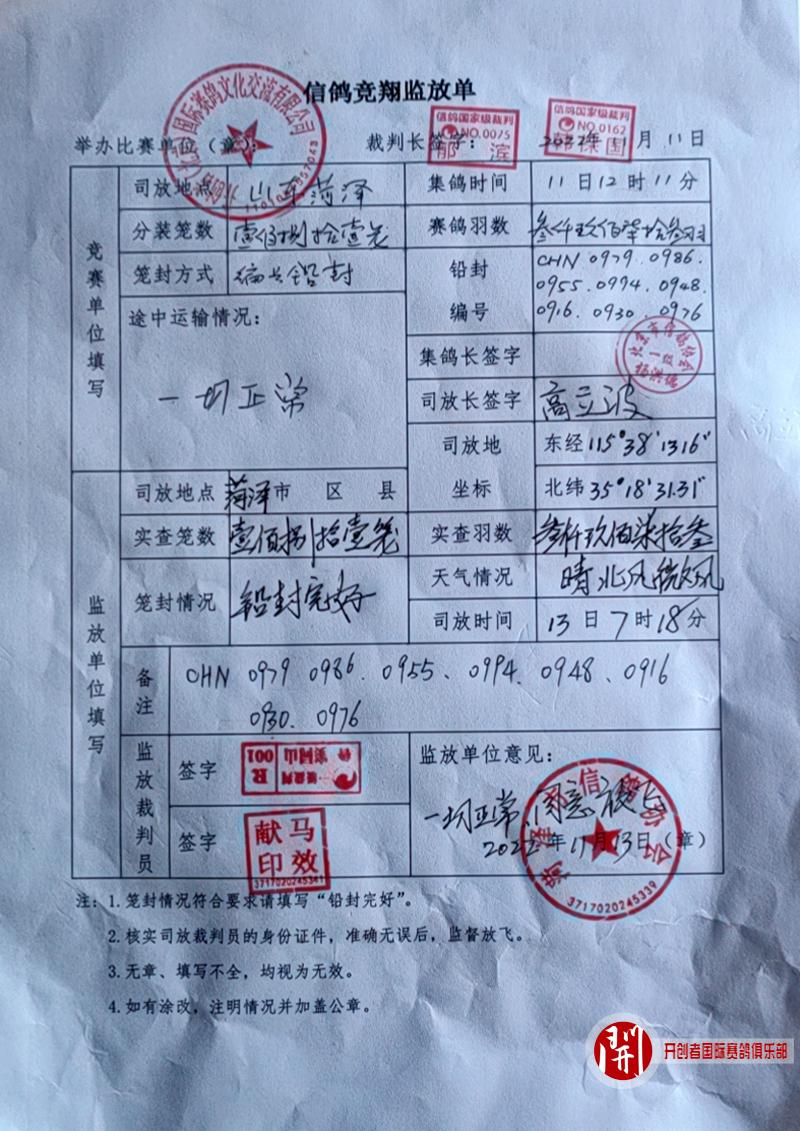 信鸽竞翔监放单
信鸽国家级裁判
NO.0075
郁滨
信鸽国家级裁判
NO.0162
国际赛鸽文化交流有限公司
举办比赛单位（章）：
裁判长签字：
2022年11月11日
竞赛单位填写
司放地点
山东菏泽
集鸽时间
11日12时11分
分装笼数
壹佰捌拾壹笼
赛鸽羽数
叁仟玖佰柒拾叁羽
笼封方式
编号铅封
铅封编号
CHN 0979.0986.
0955.0994.0948.
0916.0930.0976
途中运输情况：
一切正常
集鸽长签字
北京市信鸽协会
一级
司放长签字
高立波
司放地坐标
东经115°38'13.16"
北纬35°18'31.31"
监放单位填写
司放地点
菏泽市 区 县
实查笼数
壹佰捌拾壹笼
实查羽数
叁仟玖佰柒拾叁
笼封情况
铅封完好
天气情况
晴北风微风
司放时间
13日7时18分
备注
CHN 0979 0986、0955、0994、0948、0916
0930、0976
监放裁判员
签字
R
001
签字
马效
献印
3717020245341
监放单位意见：
一切正常,同意放飞
2022年11月13日（章）
菏泽市信鸽协会
3717020245339
注：1.笼封情况符合要求请填写“铅封完好”。
2.核实司放裁判员的身份证件，准确无误后，监督放飞。
3.无章、填写不全，均视为无效。
4.如有涂改，注明情况并加盖公章。
開
开创者国际赛鸽俱乐部